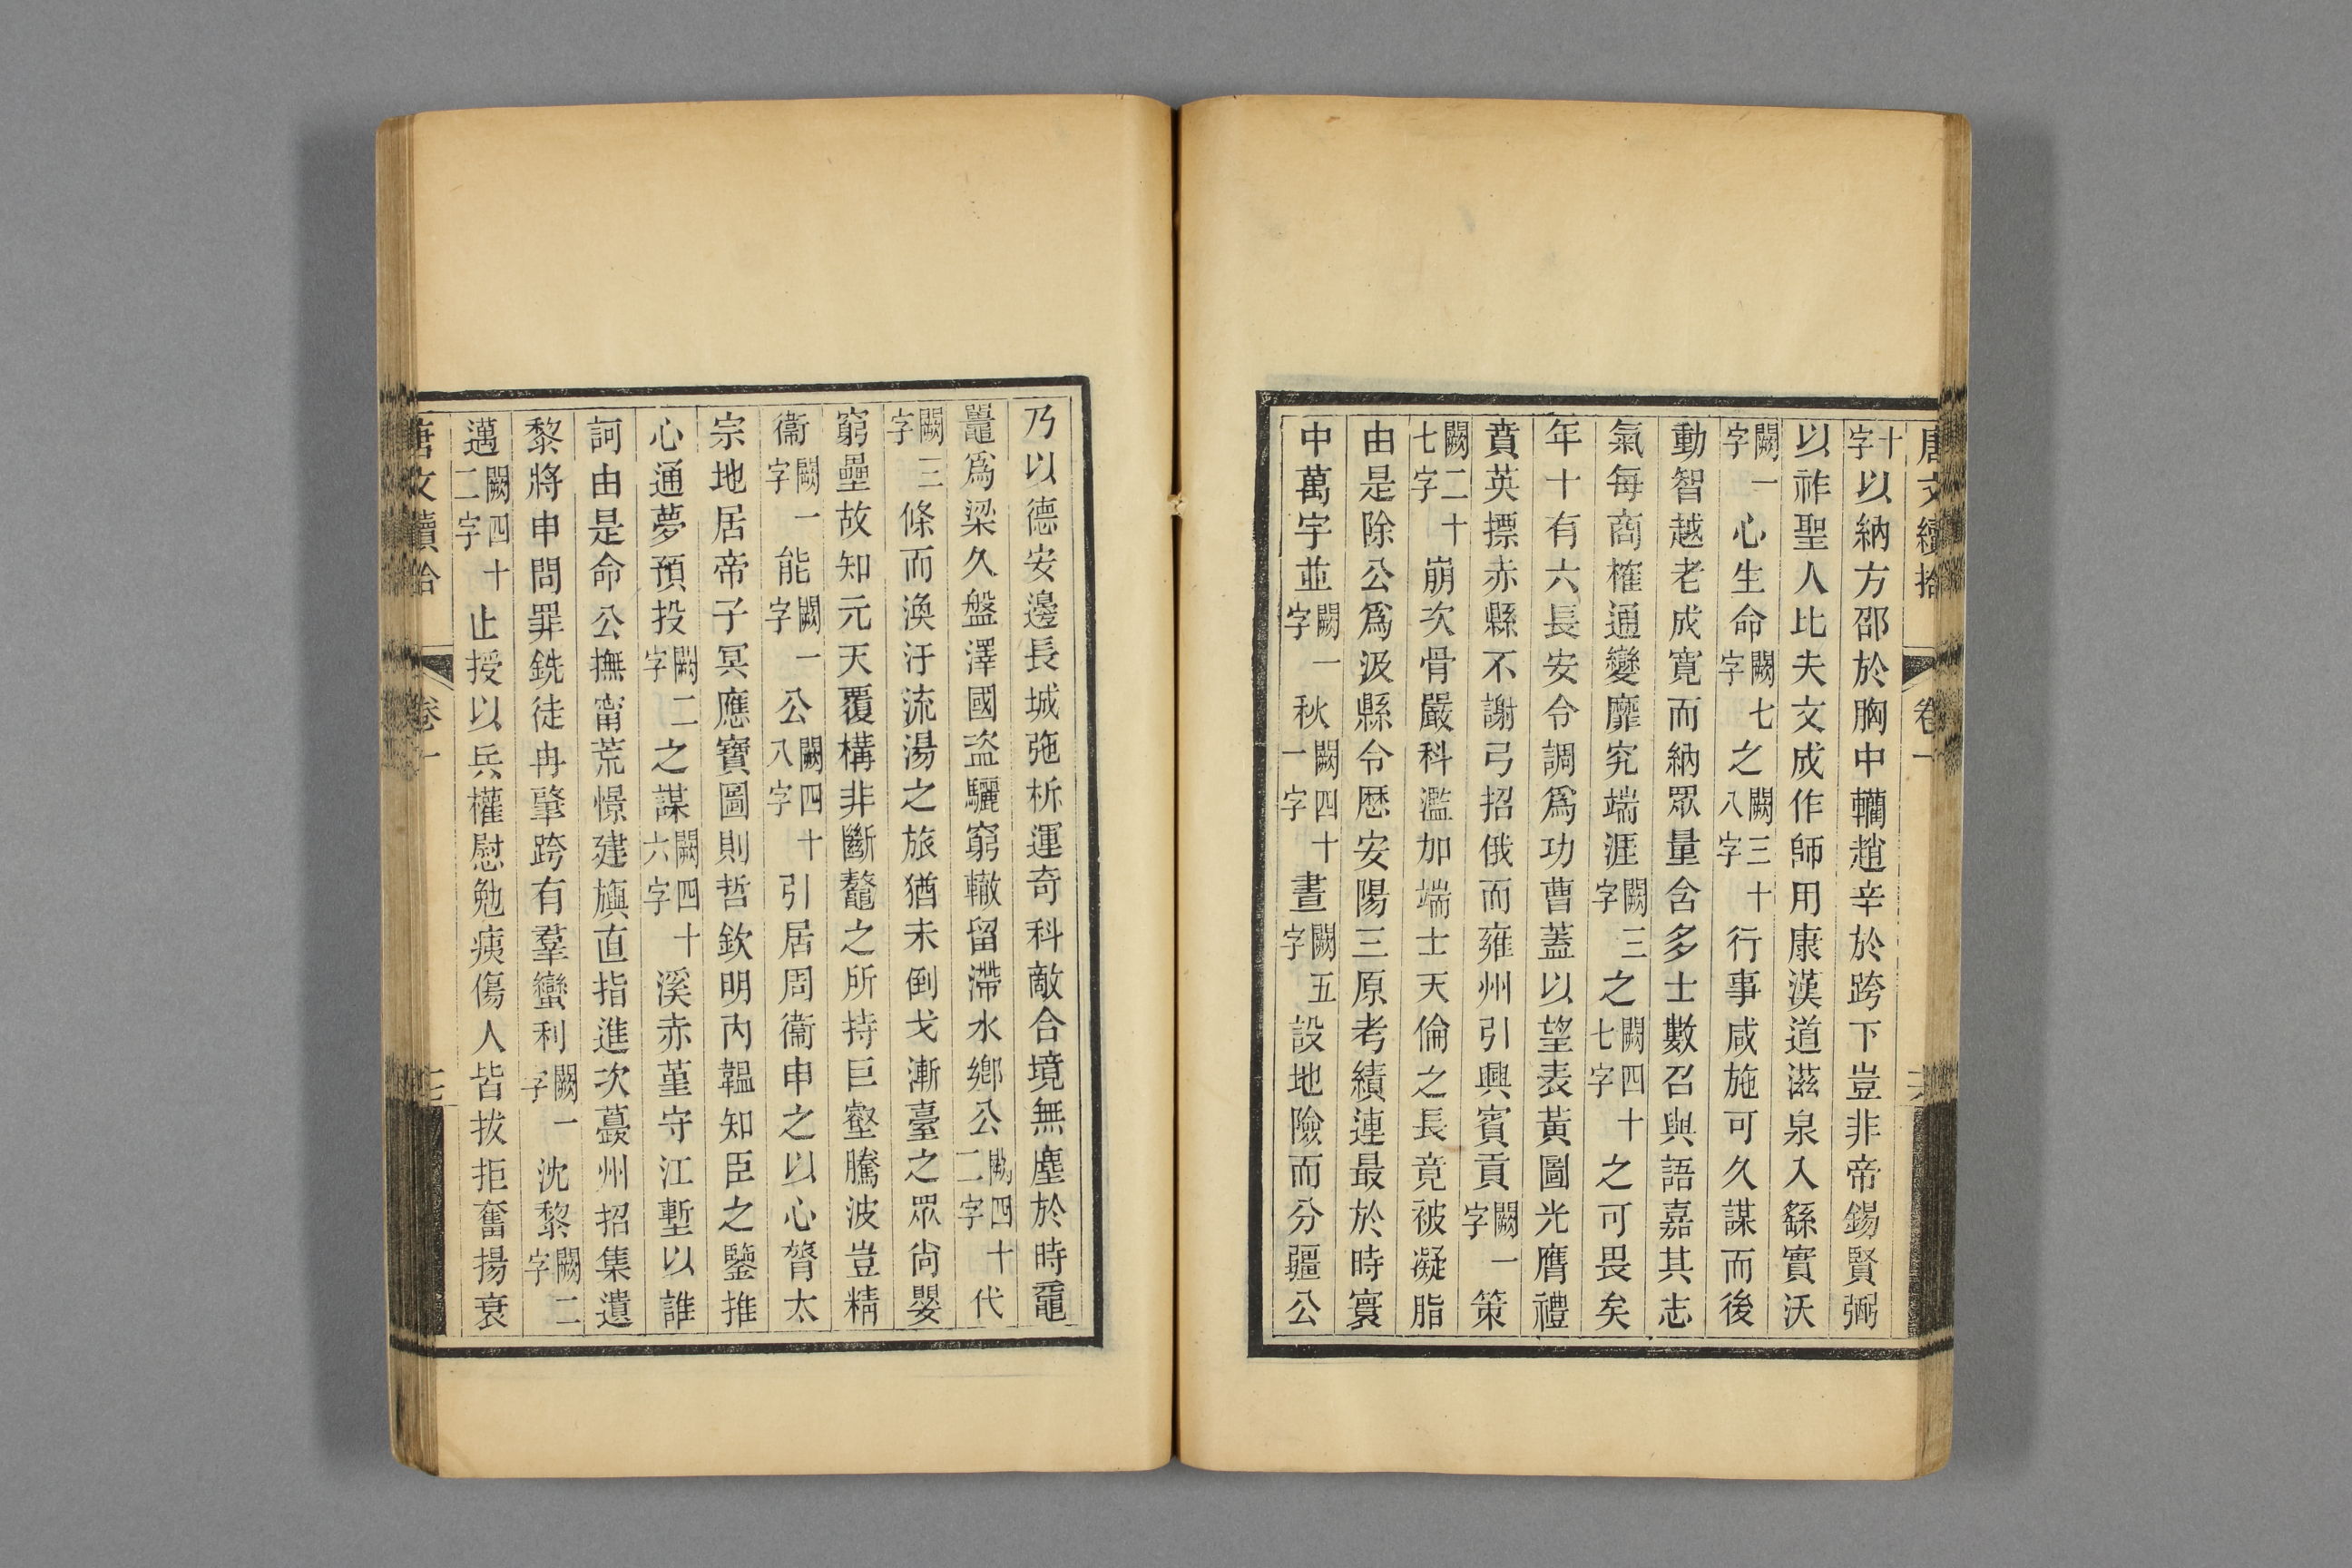 唐文續拾 卷一
十字以納方邵於胸中轥趙辛於跨下豈非帝錫賢弼
以祚聖人比夫文成作師用康漢道滋泉入繇實沃
闕一字心生命闕七字之闕三十八字行事咸施可久謀而後
動智越老成寬而納眾量含多士數召與語嘉其志
氣每商榷通變靡究端涯闕三字之闕四十七字之可畏矣
年十有六長安令調爲功曹蓋以望表黃圖光膺禮
賁英摽赤縣不謝弓招俄而雍州引興賓貢闕一字策
闕二十七字崩次骨嚴科濫加端士天倫之長竟被凝脂
由是除公爲汲縣令歷安陽三原考績連最於時寰
中萬宇並闕一字秋闕四十一字晝闕五字設地險而分疆公
乃以德安邊長城弛柝運奇科敵合境無塵於時黿
鼉爲梁久盤澤國盗驪窮轍留滯水鄉公闕四十二字代
闕三字條而渙汗流湯之旅猶未倒戈漸臺之眾尙嬰
窮壘故知元天覆構非斷鼇之所持巨壑騰波豈精
衞闕一字能闕一字公闕四十八字引居周衞申之以心膂太
宗地居帝子冥應寶圖則哲欽明內韞知臣之鑒推
心通夢預投闕二字之謀闕四十六字溪赤堇守江塹以誰
訶由是命公撫甯荒憬建旟直指進次蘷州招集遺
黎將申問罪銑徒冉肇跨有羣蠻利闕一字沈黎闕二字
邁闕四十二字止授以兵權慰勉痍傷人皆拔拒奮揚衰
唐文續拾 卷一